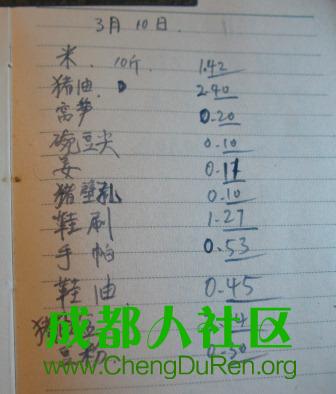 3月10日.
米. 10斤 1.42
猪油. 2.40
莴笋 0.20
碗豆尖 0.10
姜 0.11
猪 0.10
鞋刷 1.27
手帕 0.53
鞋油. 0.45
猪
豆粉. 0.30
成都人社区
www.ChengDuRen.org